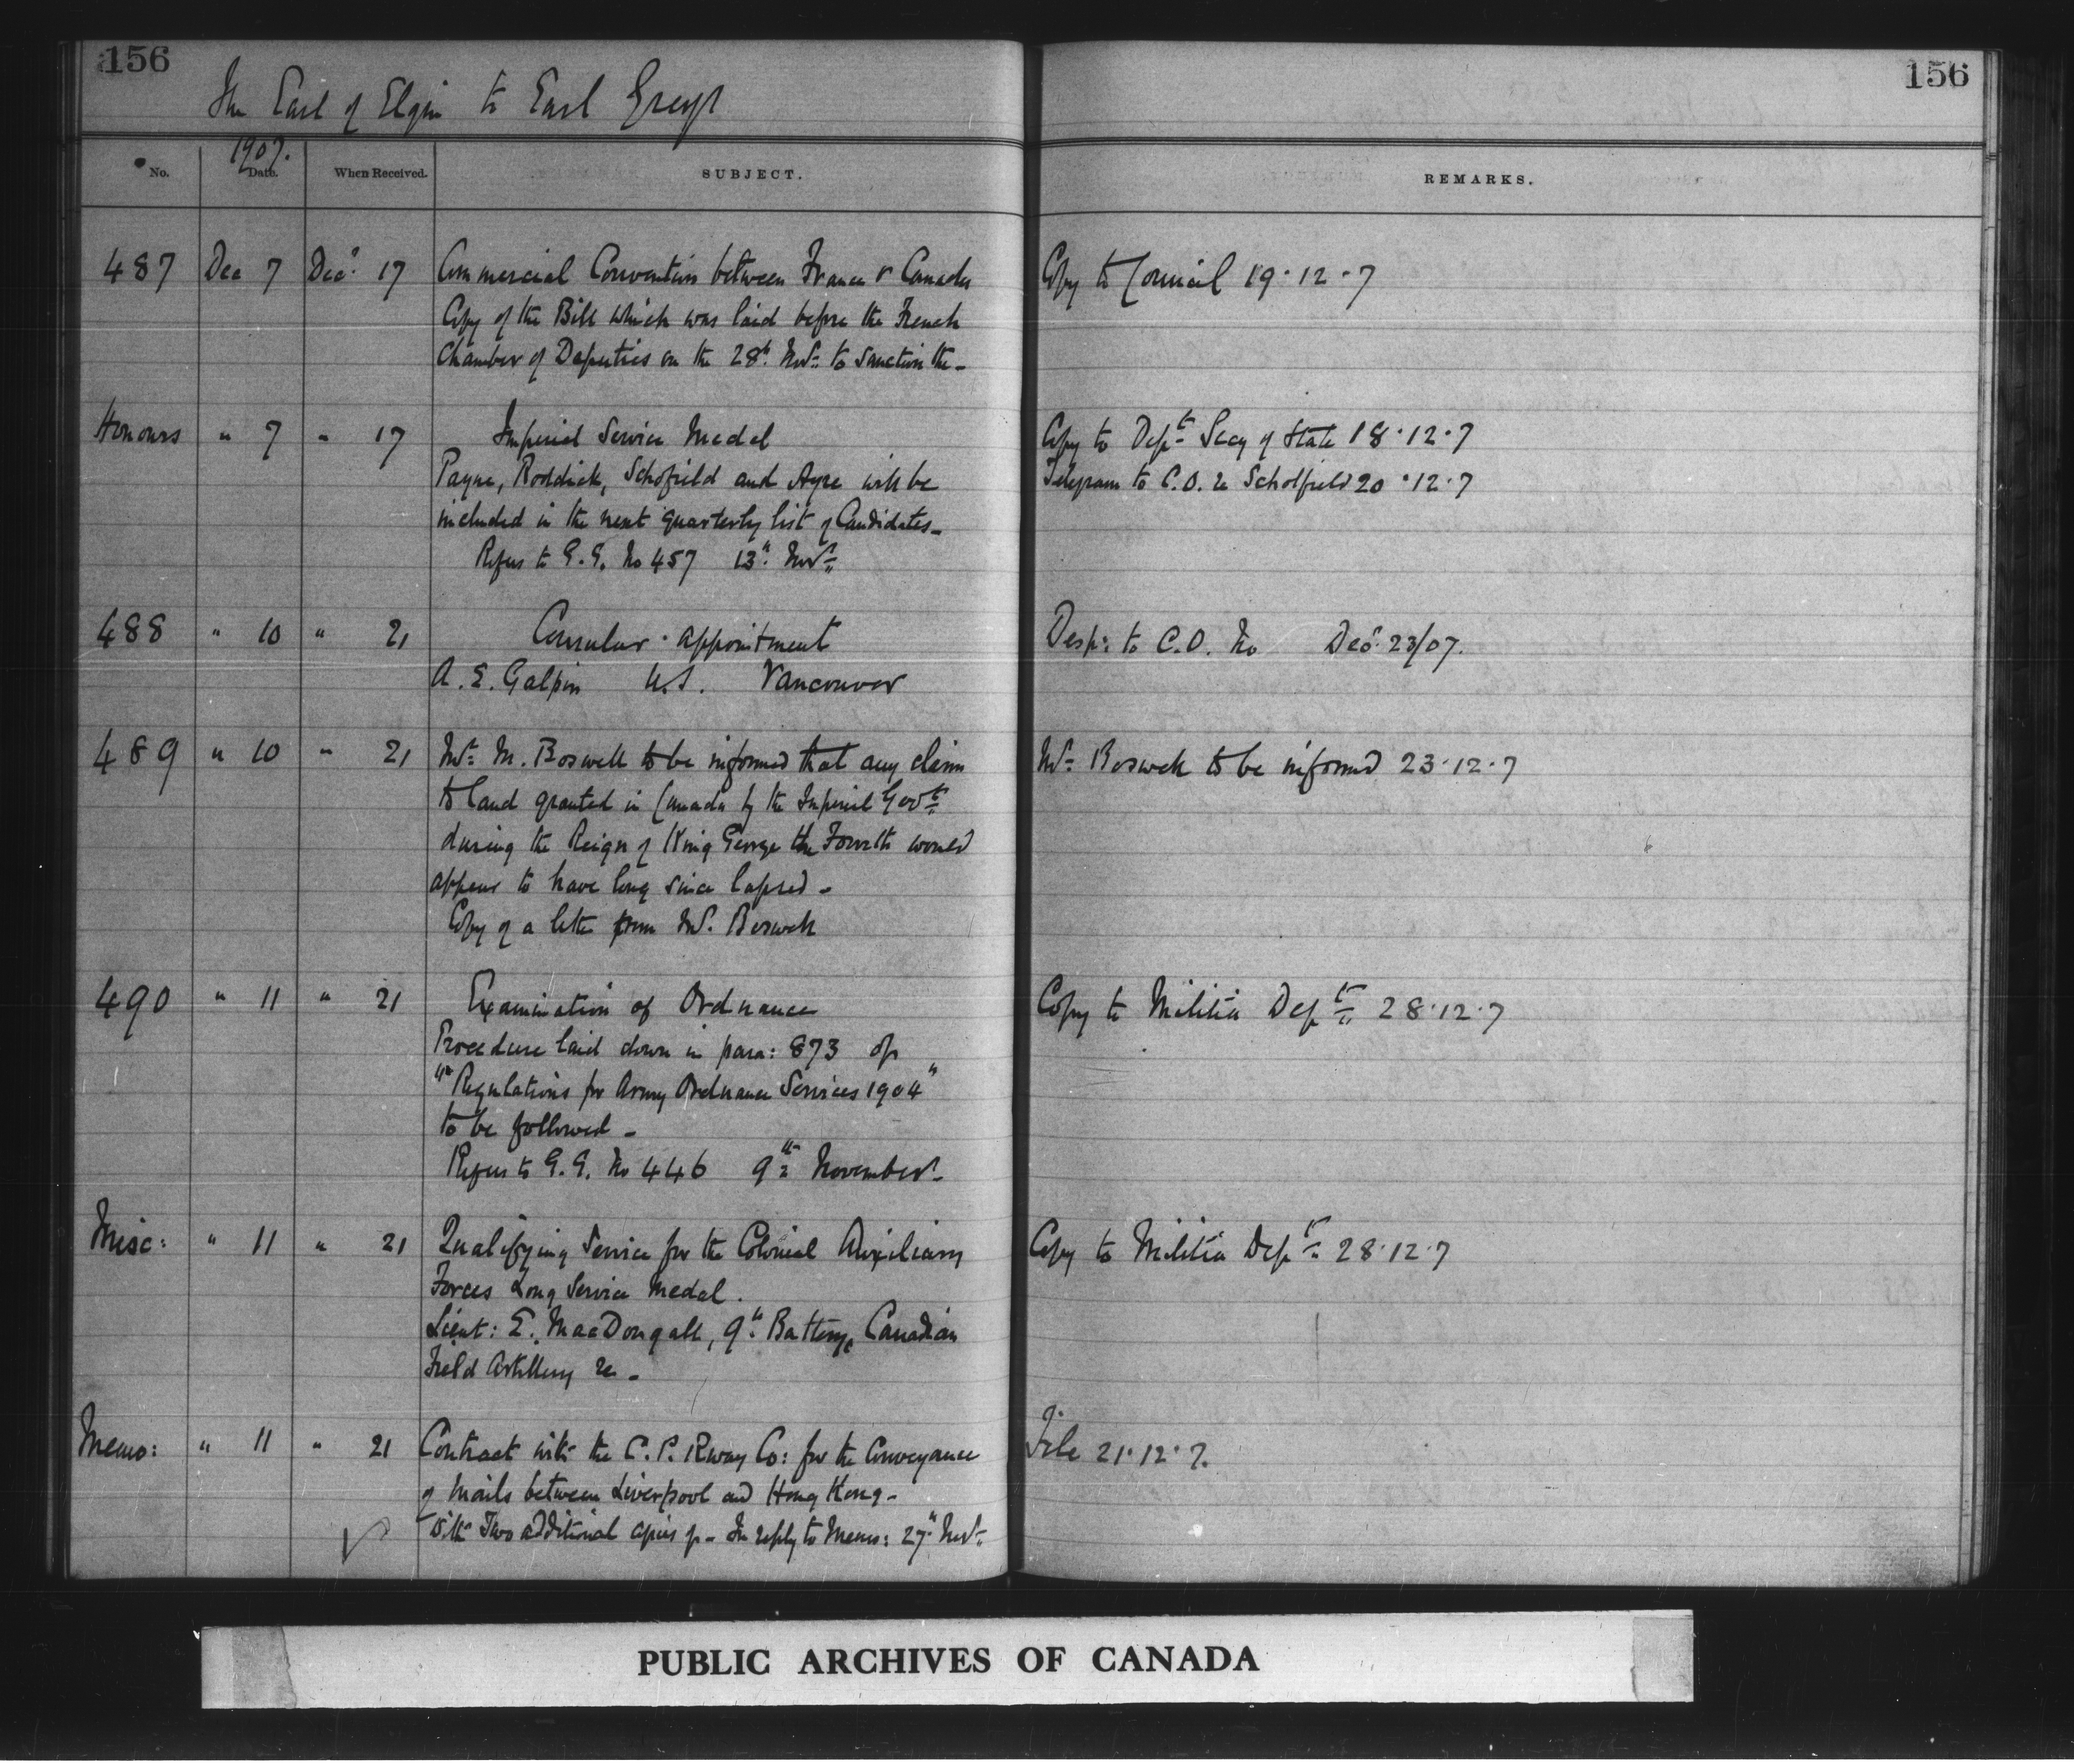 156
156
The Earl of Elgin to Earl Grey
1907.
No. Date. When Received. SUBJECT. REMARKS.
487 Dec 7 Decr 17 Commercial Convention between France & Canada Copy to Council 19.12.7
Copy of the Bill which was laid before the French
Chamber of Deputies on the 28th Novr to sanction the -
Honours " 7 " 17 Imperial Service Medal Copy to Dept Secy of State 18.12.7
Payne, Roddick, Schofield and Ayre will be Telegram to C.O. re Scholfield 20.12.7
included in the next quarterly list of Candidates -
Refers to G.G. No 457 13th Novr
488 " 10 " 21 Consular appointment Desp: to C.O. No Decr 23/07.
A. E. Galpin U.S. Vancouver
489 " 10 " 21 Mr M. Boswell to be informed that any claim Mr Boswell to be informed 23.12.7
to land granted in Canada by the Imperial Govt
during the Reign of King George the Fourth would
appear to have long since lapsed -
Copy of a letter from Mr. Boswell
490 " 11 " 21 Examination of Ordnance Copy to Militia Dept 28.12.7
Procedure laid down in para: 873 of
"Regulations for Army Ordnance Services 1904"
to be followed -
Refers to G.G. No 446 9th November -
Misc: " 11 " 21 Qualifying Service for the Colonial Auxiliary Copy to Militia Dept 28.12.7
Forces Long Service Medal.
Lieut: E. MacDougall, 9th Battery, Canadian
Field Artillery re -
Memo: " 11 " 21 Contract with the C. P. Rway Co: for the Conveyance File 21.12.7.
of Mails between Liverpool and Hong Kong -
With Two additional copies of - In reply to Memo: 27th Novr
PUBLIC ARCHIVES OF CANADA